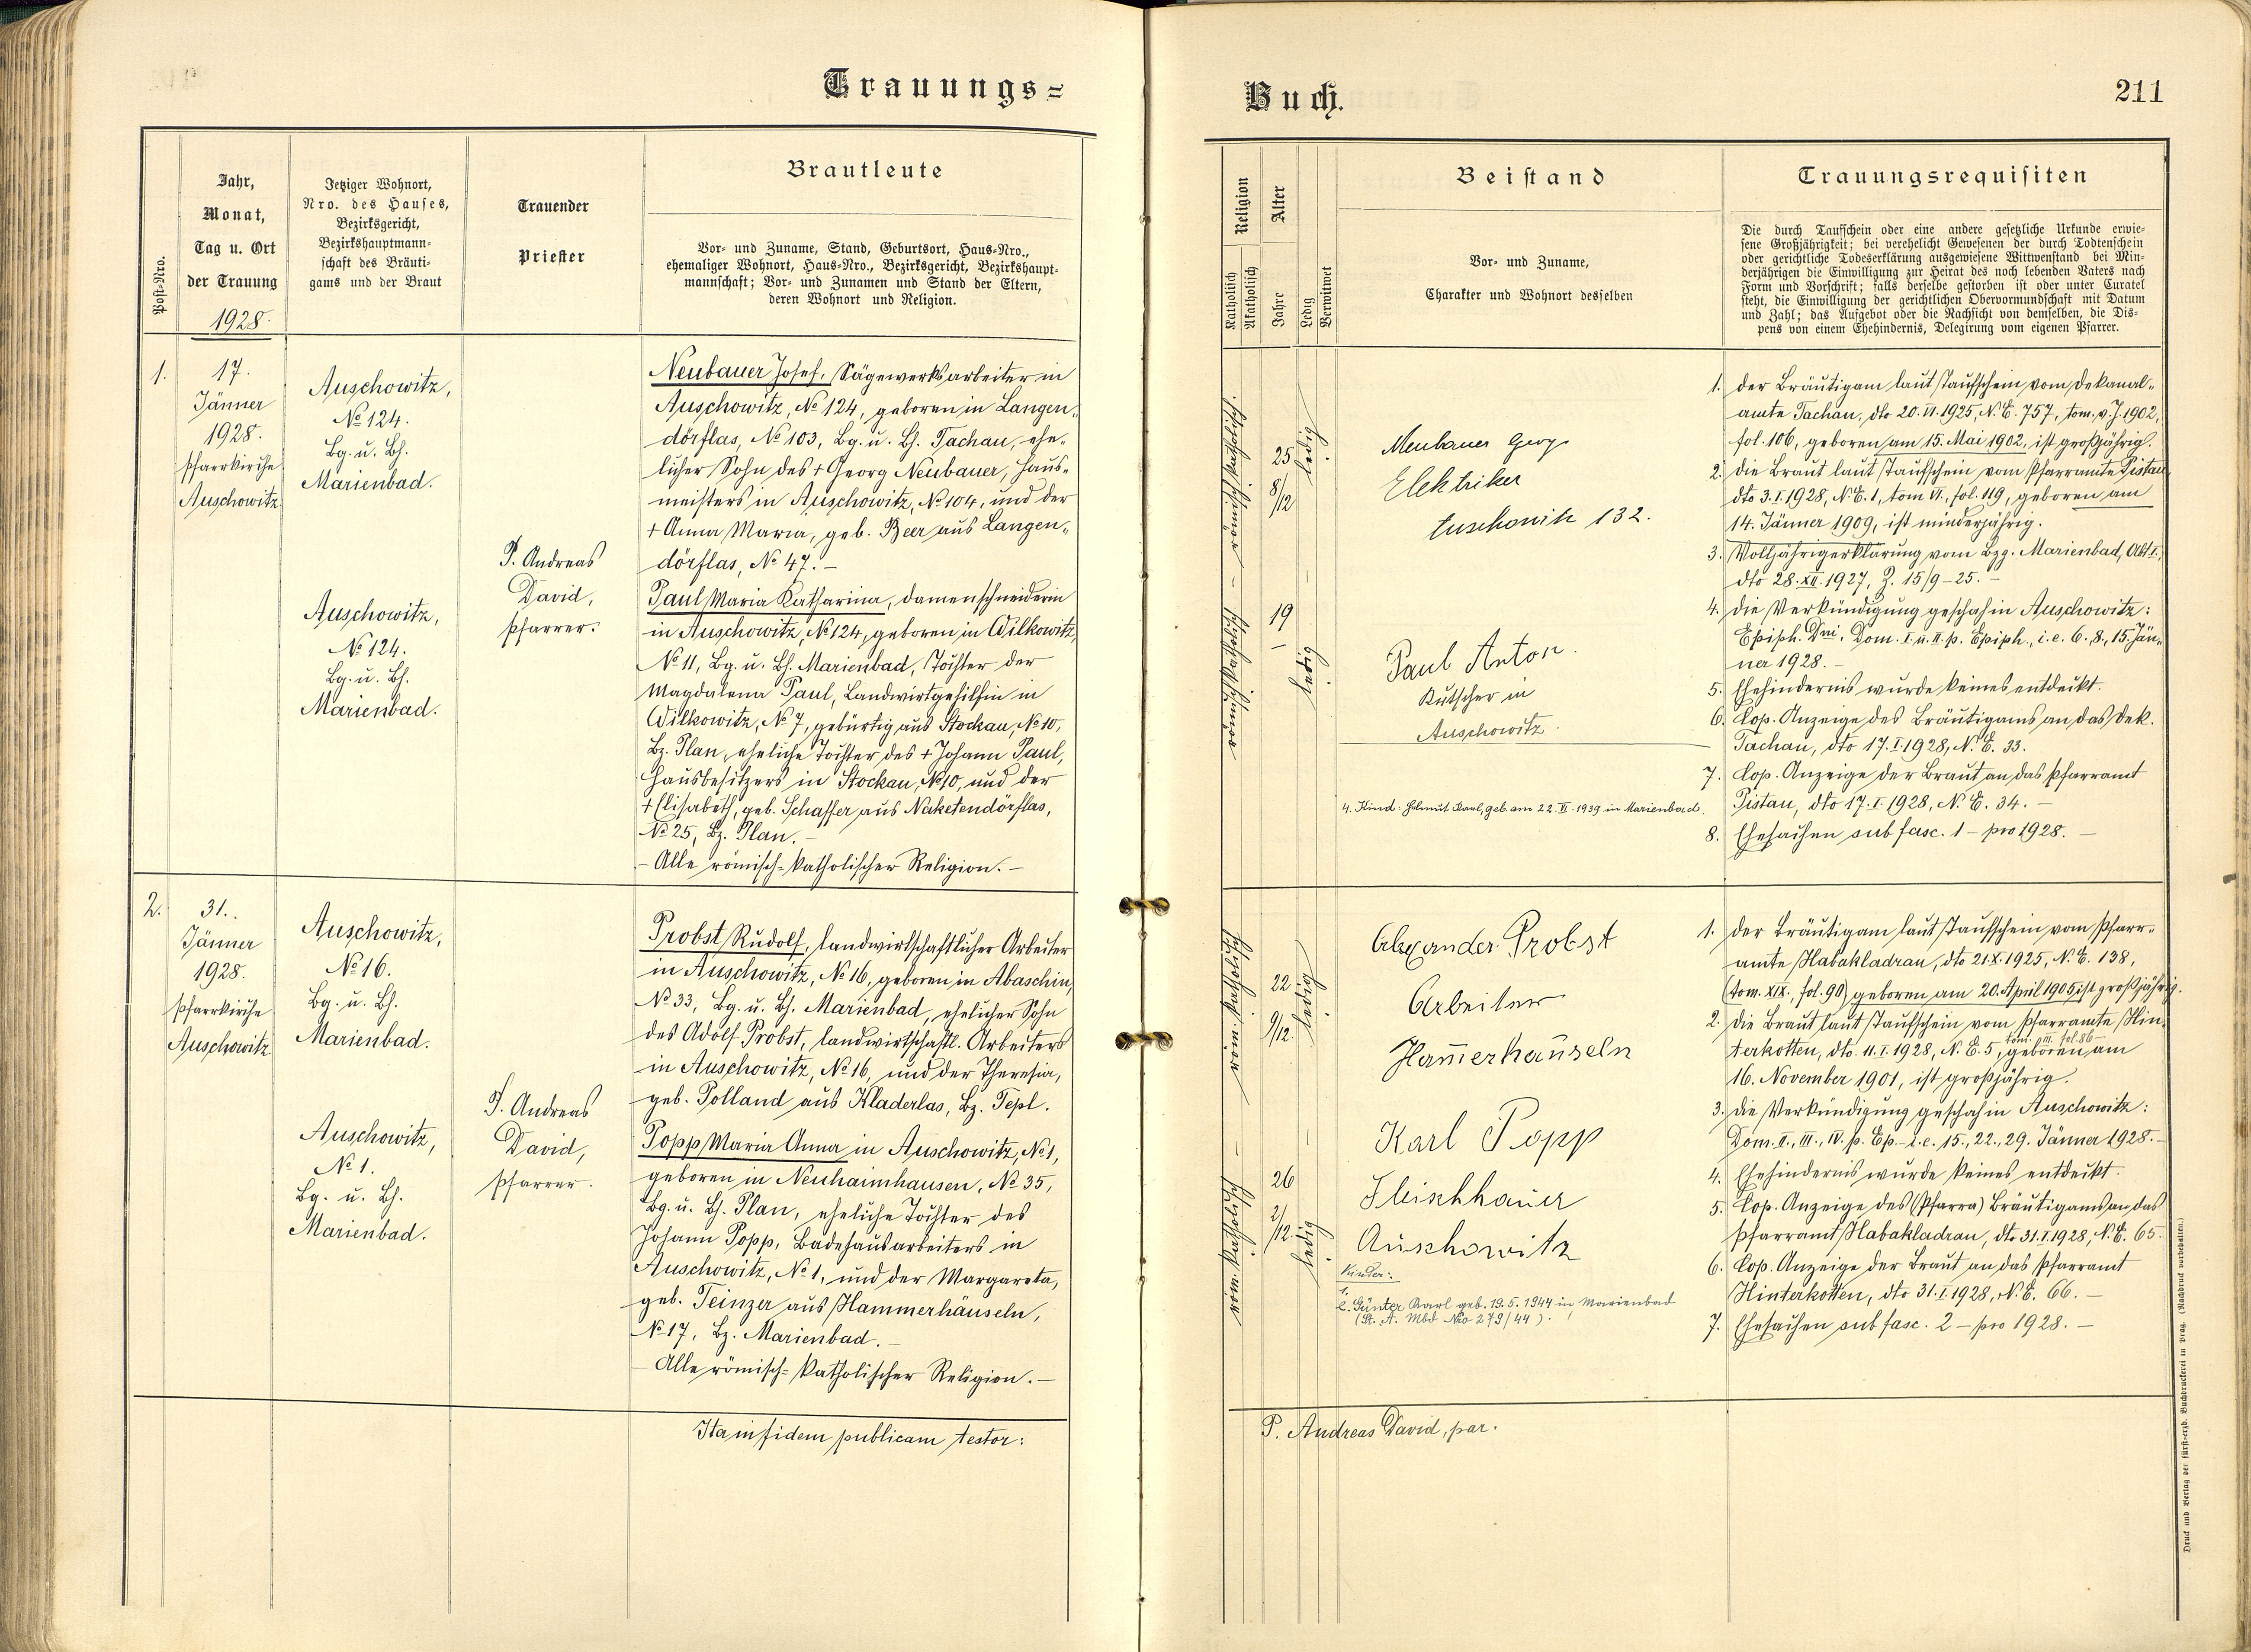 Trauungs=
Post-Nro.
Jahr,
Monat,
Tag u. Ort
der Trauung
1928.
Jetziger Wohnort,
Nro. des Hauses,
Bezirksgericht,
Bezirkshauptmann=
schaft des Bräuti=
gams und der Braut
Trauender
Priester
Brautleute
Vor- und Zuname, Stand, Geburtsort, Haus-Nro.,
ehemaliger Wohnort, Haus-Nro., Bezirksgericht, Bezirkshaupt=
mannschaft; Vor- und Zunamen und Stand der Eltern,
deren Wohnort und Religion.
1.
17.
Jänner
1928.
Pfarrkirche
Auschowitz.
Auschowitz,
No 124.
Bg. u. Bh.
Marienbad.
Auschowitz,
No 124.
Bg. u. Bh.
Marienbad.
P. Andreas
David,
Pfarrer.
Neubauer Josef, Sägewerksarbeiter in
Auschowitz, No 124, geboren in Langen=
dörflas, No 103, Bg. u. Bh. Tachau, ehe=
licher Sohn des + Georg Neubauer, Haus=
meisters in Auschowitz, No 104, und der
+ Anna Maria, geb. Beer aus Langen=
dörflas, No 47. –
Paul Maria Katharina, Damenschneiderin
in Auschowitz, No 124, geboren in Wilkowitz,
No 11, Bg. u. Bh. Marienbad, Tochter der
Magdalena Paul, Landwirtgehilfin in
Wilkowitz, No 7, gebürtig aus Stockau, No 10,
Bz. Plan, eheliche Tochter des + Johann Paul,
Hausbesitzers in Stockau, No 10, und der
+ Elisabeth, geb. Schaffer aus Naketendörflas,
No 25, Bz. Plan. –
– Alle römisch=katholischer Religion. –
2.
31.
Jänner
1928.
Pfarrkirche
Auschowitz.
Auschowitz,
No 16.
Bg. u. Bh.
Marienbad.
Auschowitz,
No 1.
Bg. u. Bh.
Marienbad.
P. Andreas
David,
Pfarrer.
Probst Rudolf, landwirtschaftlicher Arbeiter
in Auschowitz, No 16, geboren in Abaschin,
No 33, Bg. u. Bh. Marienbad, ehelicher Sohn
des Adolf Probst, landwirtschaftl. Arbeiters
in Auschowitz, No 16, und der Theresia,
geb. Polland aus Kladerlas, Bz. Tepl.
Popp Maria Anna in Auschowitz, No 1,
geboren in Neuhaimhausen, No 35,
Bg. u. Bh. Plan, eheliche Tochter des
Johann Popp, Badehausarbeiters in
Auschowitz, No 1, und der Margareta,
geb. Teinzer aus Hammerhäuseln,
No 17, Bz. Marienbad. –
– Alle römisch=katholischer Religion. –
Ita in fidem publicam testor:
Buch.
211
Religion
Katholisch
Akatholisch
Alter
Jahre
Ledig
Verwitwet
Beistand
Vor- und Zuname,
Charakter und Wohnort desselben
Trauungsrequisiten
Die durch Taufschein oder eine andere gesetzliche Urkunde erwie=
sene Großjährigkeit; bei verehelicht Gewesenen der durch Todtenschein
oder gerichtliche Todeserklärung ausgewiesene Wittwenstand bei Min=
derjährigen die Einwilligung zur Heirat des noch lebenden Vaters nach
Form und Vorschrift; falls derselbe gestorben ist oder unter Curatel
steht, die Einwilligung der gerichtlichen Obervormundschaft mit Datum
und Zahl; das Aufgebot oder die Nachsicht von demselben, die Dis=
pens von einem Ehehindernis, Delegirung vom eigenen Pfarrer.
25
8/12
ledig
19
–
ledig
Neubauer Georg
Elektriker
Auschowitz 132.
Paul Anton.
Kutscher in
Auschowitz.
4. Kind: Helmut Karl, geb. am 22. II. 1939 in Marienbad.
1. Der Bräutigam laut Taufschein vom Dekanal=
amte Tachau, dto 20. VI. 1925, N. E. 757, tom. v. J. 1902,
fol. 106, geboren am 15. Mai 1902, ist großjährig.
2. Die Braut laut Taufschein vom Pfarramte Pistau
dto 3. I. 1928, N. E. 1, tom VI., fol. 119, geboren am
14. Jänner 1909, ist minderjährig.
3. Volljährigerklärung vom Bzg. Marienbad, Abt I.,
dto 28. XII. 1927, Z. 15/9–25. –
4. Die Verkündigung geschah in Auschowitz:
Epiph. Dni, Dom. I. u. II. p. Epiph., i. e. 6., 8., 15. Jän=
ner 1928. –
5. Ehehindernis wurde keines entdeckt.
6. Cop. Anzeige des Bräutigams an das Dek.
Tachau, dto 17. I. 1928, N. E. 33.
7. Cop. Anzeige der Braut an das Pfarramt
Pistau, dto 17. I. 1928, N. E. 34. –
8. Ehesachen sub fasc. 1 – pro 1928. –
22
9/12.
ledig
26
2/12.
ledig
Alexander Probst
Arbeiter
Hammerhäuseln
Karl Popp
Fleischhauer
Auschowitz
Kinder:
1.
2. Günter Karl geb. 19. 5. 1944 in Marienbad
(St. A. Mbd No 279/44).
1. Der Bräutigam laut Taufschein vom Pfarr=
amte Habakladrau, dto 21. X. 1925, N. E. 138,
(tom. XIX., fol. 90) geboren am 20. April 1905, ist großjährig.
2. Die Braut laut Taufschein vom Pfarramte Hin=
tom. III. fol. 86
terkotten, dto. 11. I. 1928, N. E. 5, geboren am
16. November 1901, ist großjährig.
3. Die Verkündigung geschah in Auschowitz:
Dom. II., III., IV. p. Ep. – i. e. 15., 22., 29. Jänner 1928. –
4. Ehehindernis wurde keines entdeckt.
5. Cop. Anzeige des (Pfarra) Bräutigams an das
Pfarramt Habakladrau, dto 31. I. 1928, N. E. 65.
6. Cop. Anzeige der Braut an das Pfarramt
Hinterkotten, dto 31. I. 1928, N. E. 66. –
7. Ehesachen sub fasc. 2 – pro 1928. –
P. Andreas David, par.
Druck und Verlag der fürst-erzb. Buchdruckerei in Prag. (Nachdruck vorbehalten.)